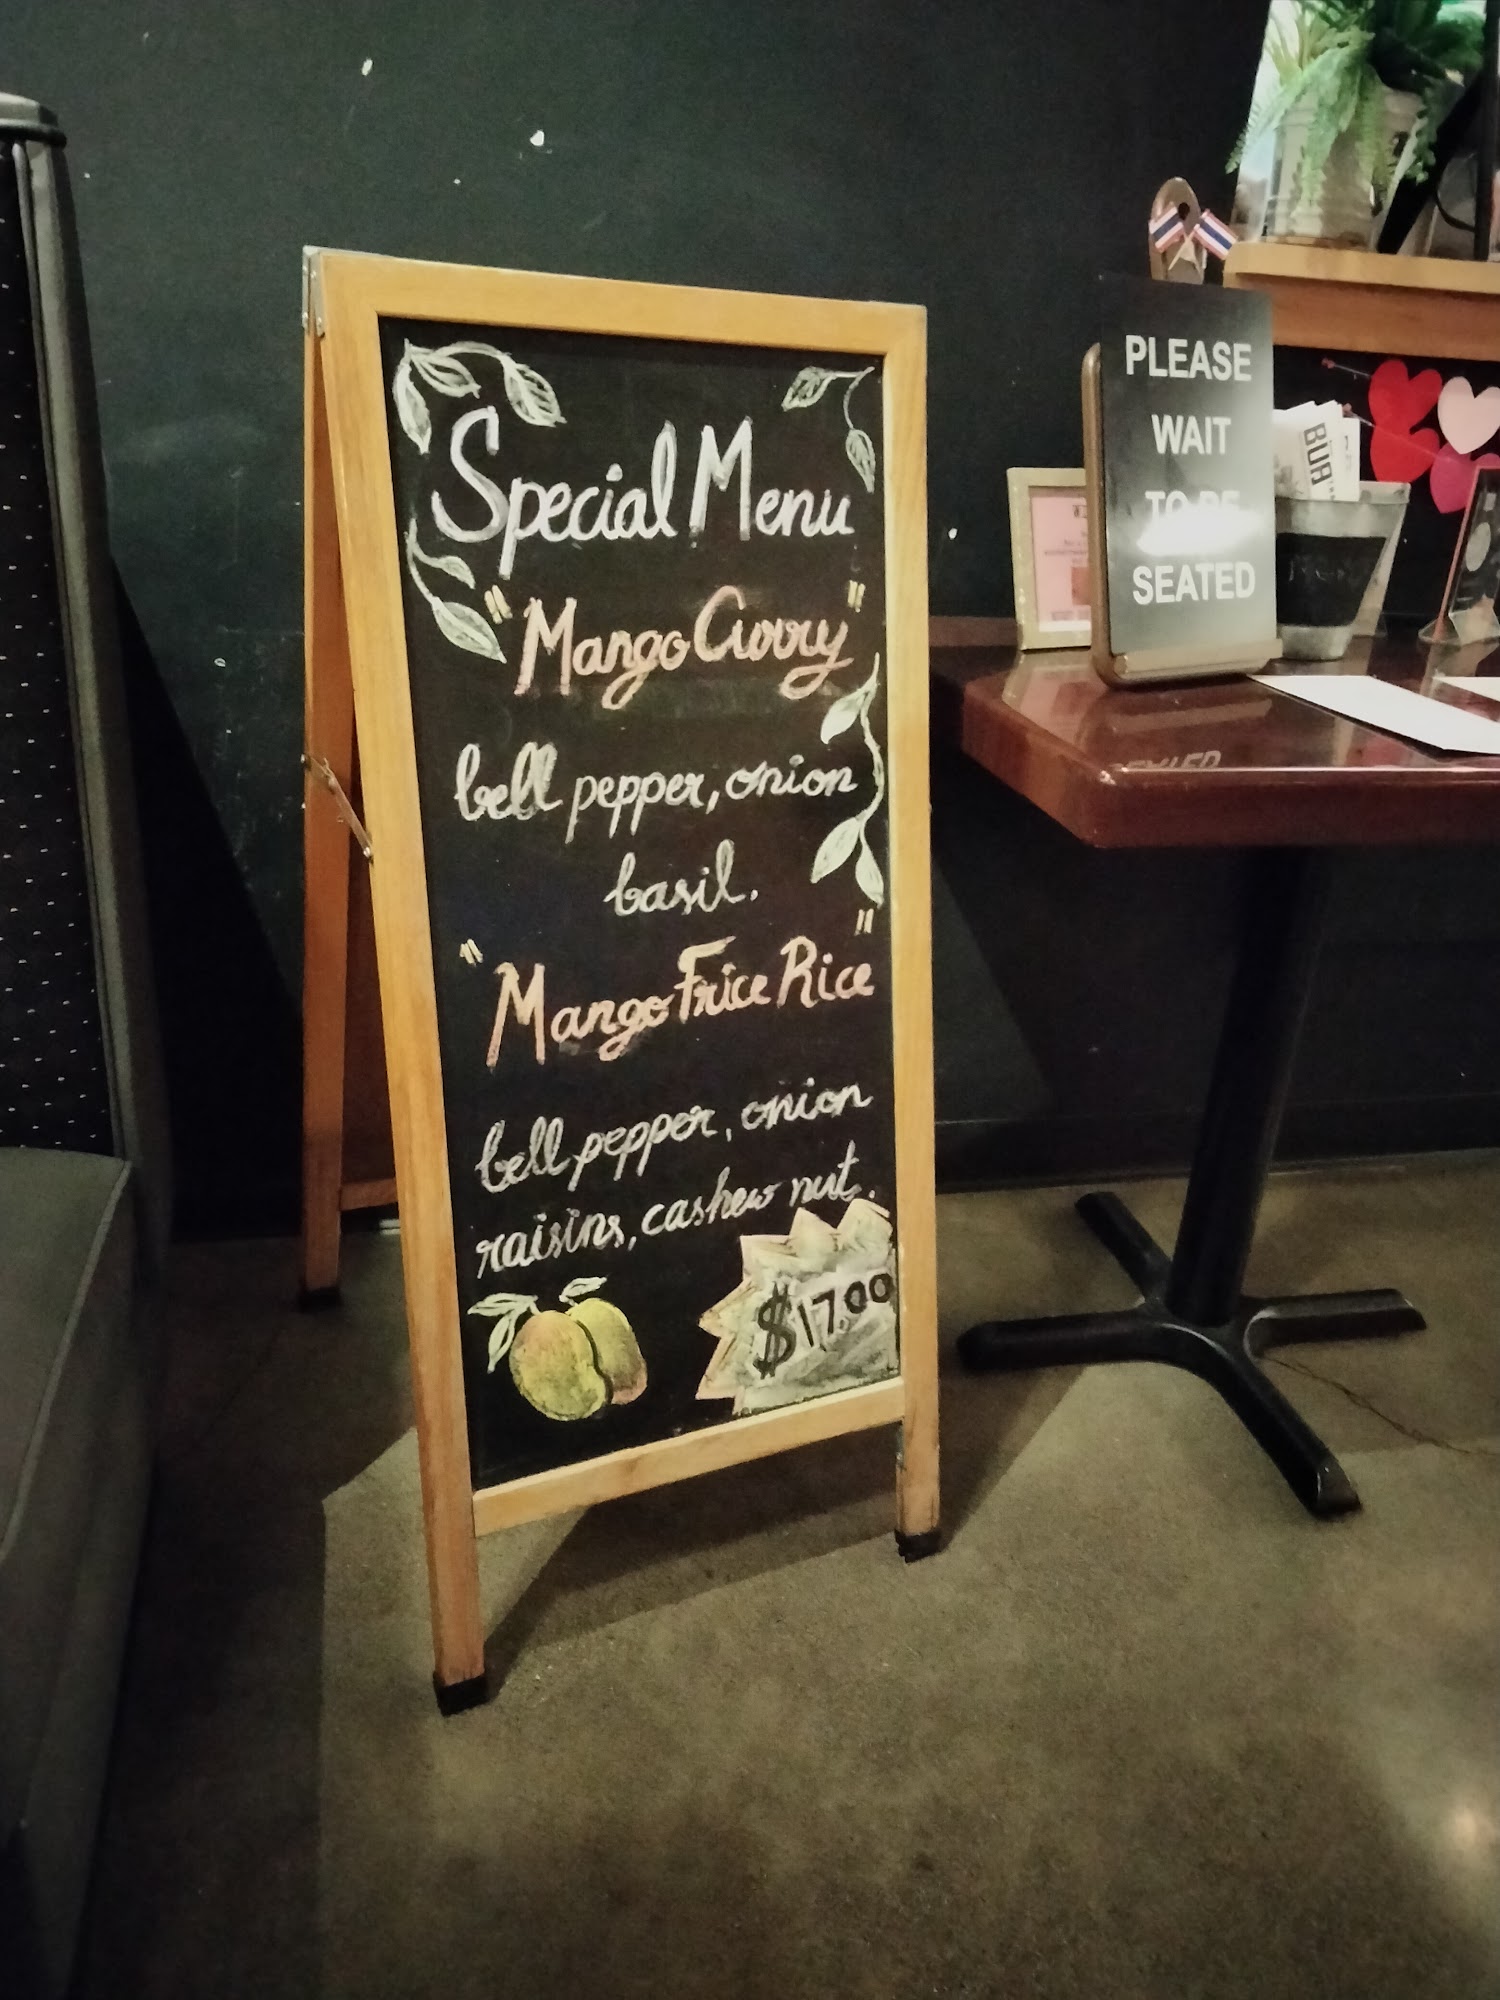 Special Menu
"Mango Curry"
bell pepper, onion
basil.
"Mango Frice Rice"
bell pepper, onion
raisins, cashew nut.
$17.00
PLEASE
WAIT
TO BE
SEATED